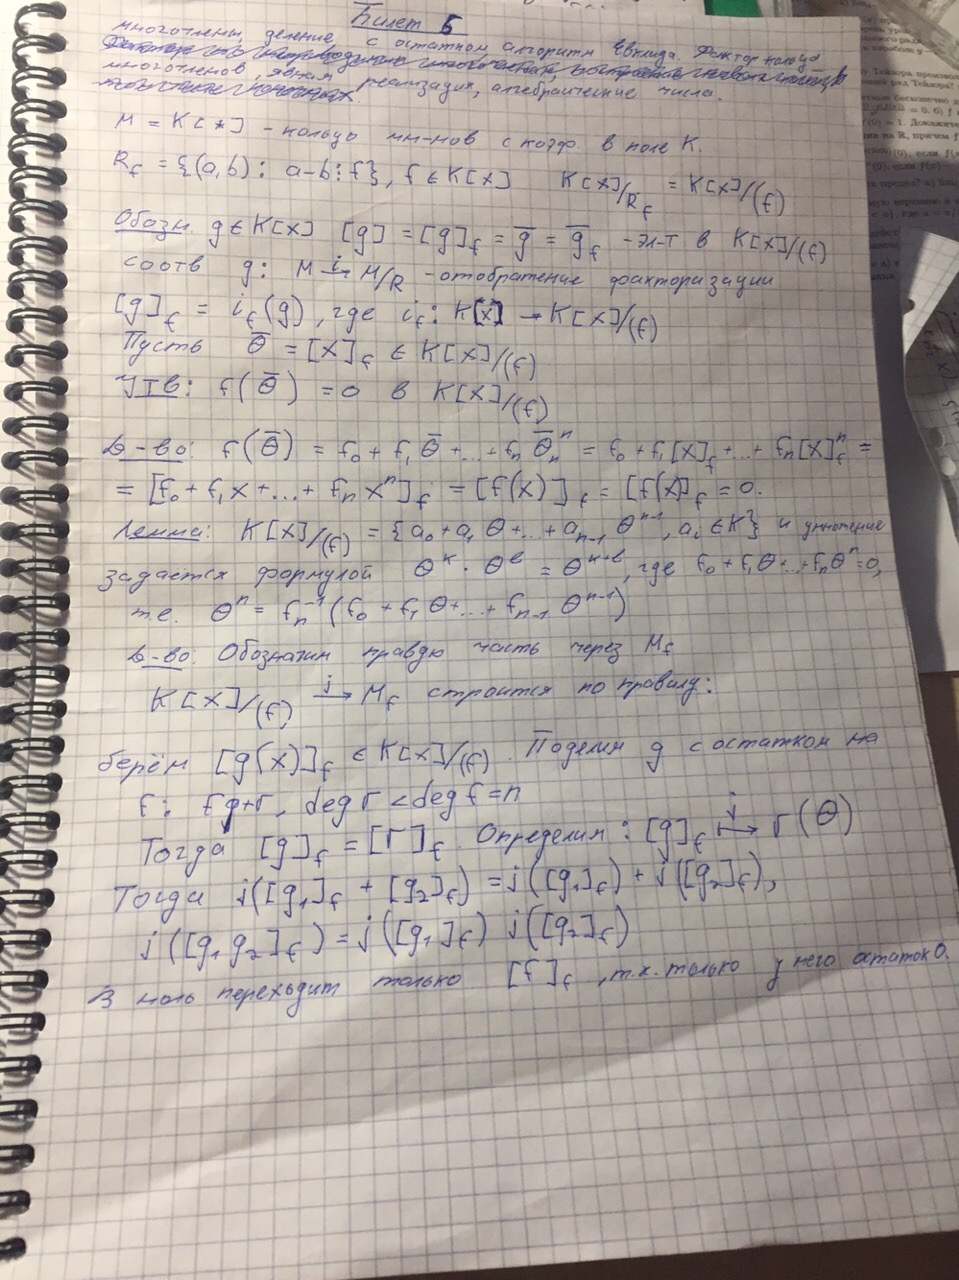 Билет 5
многочлены, деление с остатком алгоритм Евклида. Фактор кольцо
многочленов, явная реализация, алгебраические числа.
M = K[x] - кольцо мн-нов с коэф. в поле K.
R_f = {(a,b): a-b⋮f}, f ∈ K[x] K[x]/R_f = K[x]/(f)
Обозн. g ∈ K[x] [g] = [g]_f = g̅ = g̅_f - эл-т в K[x]/(f)
соотв g: M →i M/R - отображение факторизации
[g]_f = i_f(g), где i_f: K[x] → K[x]/(f)
Пусть Θ̅ = [x]_f ∈ K[x]/(f)
Утв: f(Θ̅) = 0 в K[x]/(f)
Д-во: f(Θ̅) = f₀ + f₁Θ̅ +...+ f_n Θ̅_n^n = f₀ + f₁[x]_f +...+ f_n[x]_f^n =
= [f₀ + f₁x +...+ f_n x^n]_f = [f(x)]_f = [f(x)]_f = 0.
Лемма: K[x]/(f) = {a₀ + a₁Θ +...+ a_{n-1}Θ^{n-1}, a_i ∈ K} и умножение
задается формулой Θ^k · Θ^l = Θ^{k+l}, где f₀ + f₁Θ +...+ f_nΘ^n = 0,
т.е. Θ^n = f_n^{-1}(f₀ + f₁Θ +...+ f_{n-1}Θ^{n-1})
Д-во: Обозначим правую часть через M_f
K[x]/(f) →j M_f строится по правилу:
берём [g(x)]_f ∈ K[x]/(f). Поделим g с остатком на
f: fq+r, deg r < deg f = n
Тогда [g]_f = [r]_f. Определим: [g]_f ↦j r(Θ)
Тогда j([g₁]_f + [g₂]_f) = j([g₁]_f) + j([g₂]_f),
j([g₁g₂]_f) = j([g₁]_f) j([g₂]_f)
В ноль переходит только [f]_f, т.к. только у него остаток 0.